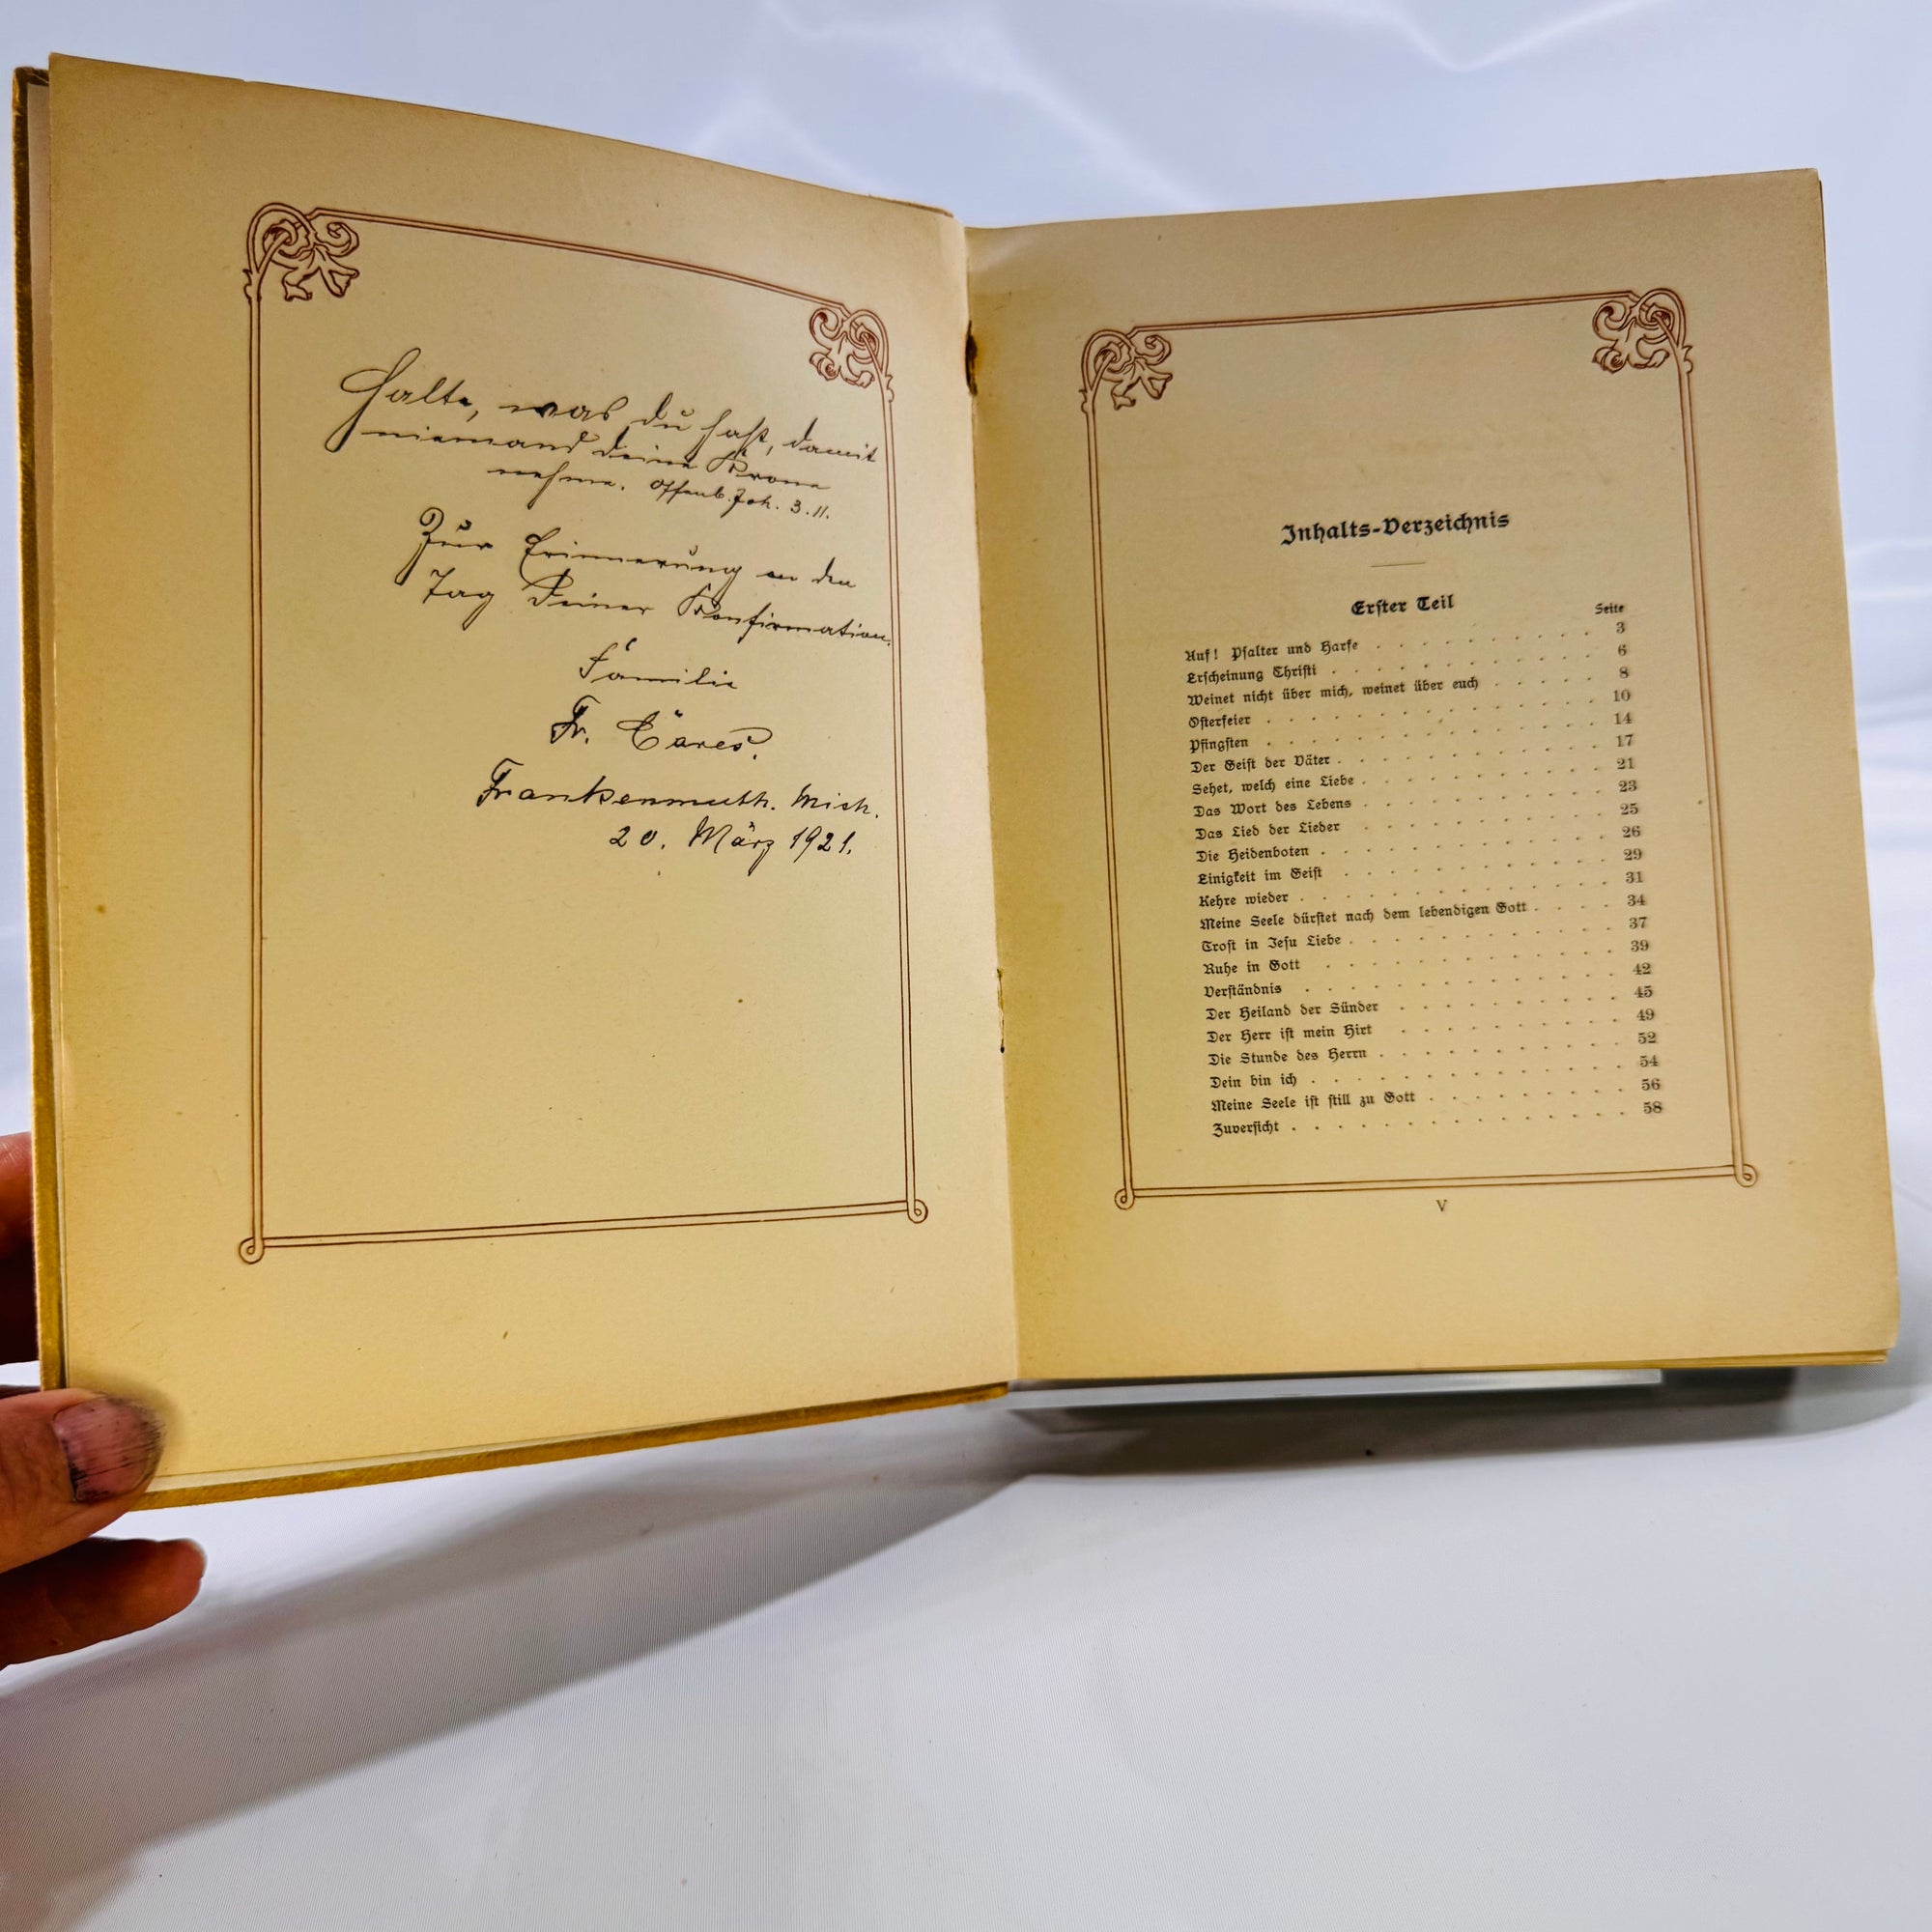 Halte, was du hast, damit
niemand deine Krone
nehme. Offenb. Joh. 3. 11.
Zur Erinnerung an den
Tag Deiner Konfirmation.
Familie
Fr.
Frankenmuth. Mich.
20. März 1921.
Inhalts-Verzeichnis
Erster Teil
Seite
Auf! Psalter und Harfe . . . . . . . . . . 3
Erscheinung Christi . . . . . . . . . . . . 6
Weinet nicht über mich, weinet über euch . . . . . 8
Osterfeier . . . . . . . . . . . . . . 10
Pfingsten . . . . . . . . . . . . . . 14
Der Geist der Väter . . . . . . . . . . . . 17
Sehet, welch eine Liebe . . . . . . . . . . . 21
Das Wort des Lebens . . . . . . . . . . . 23
Das Lied der Lieder . . . . . . . . . . . 25
Die Heidenboten . . . . . . . . . . . . . 26
Einigkeit im Geist . . . . . . . . . . . . 29
Kehre wieder . . . . . . . . . . . . . . 31
Meine Seele dürstet nach dem lebendigen Gott . . . . 34
Trost in Jesu Liebe . . . . . . . . . . . . 37
Ruhe in Gott . . . . . . . . . . . . . 39
Verständnis . . . . . . . . . . . . . . 42
Der Heiland der Sünder . . . . . . . . . . 45
Der Herr ist mein Hirt . . . . . . . . . . 49
Die Stunde des Herrn . . . . . . . . . . . 52
Dein bin ich . . . . . . . . . . . . . . 54
Meine Seele ist still zu Gott . . . . . . . . . 56
Zuversicht . . . . . . . . . . . . . . . 58
V